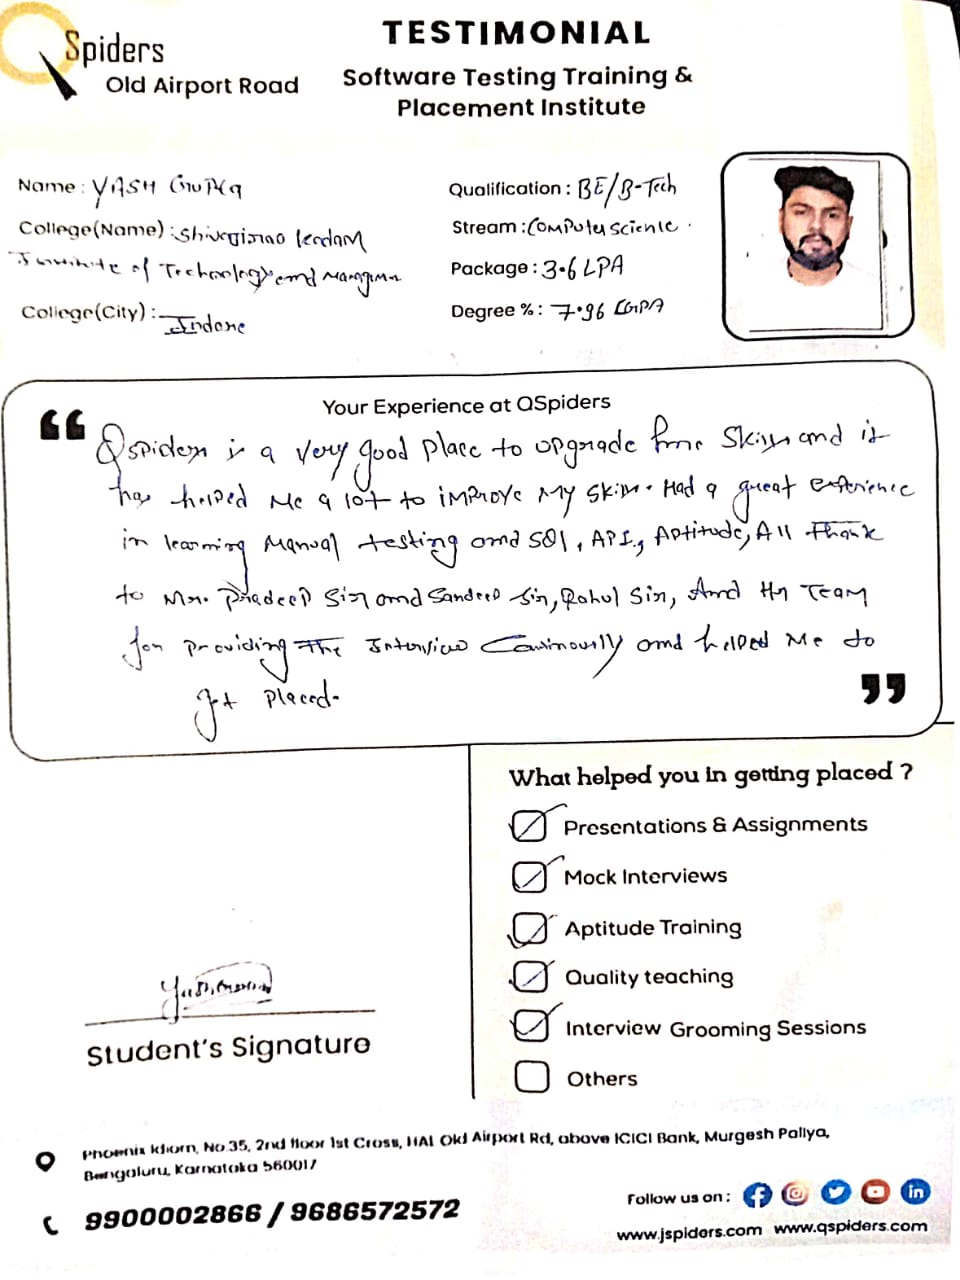 QSpiders
Old Airport Road
TESTIMONIAL
Software Testing Training &
Placement Institute
Name : YASH Gupta
College(Name) : Shivajirao Kadam
Institute of Technology and Managmen
College(City) : Indore
Qualification : BE/B-Tech
Stream : Computer Science .
Package : 3.6 LPA
Degree % : 7.96 CGPA
Your Experience at QSpiders
“ Qspiders is a very good place to upgrade Skills and it
has helped me a lot to improve my skills. Had a great experience
in learning Manual testing and SQL, API, Aptitude, All Thank
to Mr. Pradeep Sir and Sandeep Sir, Rahul Sir, And Hr Team
for providing The Interview and helped me to
get placed. ”
Student's Signature
What helped you in getting placed ?
Presentations & Assignments
Mock Interviews
Aptitude Training
Quality teaching
Interview Grooming Sessions
Others
Phoenix No.35, 2nd floor 1st Cross, HAL Old Airport Rd, above ICICI Bank, Murgesh Pallya,
Bengaluru, Karnataka 560017
9900002866 / 9686572572
Follow us on :
www.jspiders.com www.qspiders.com